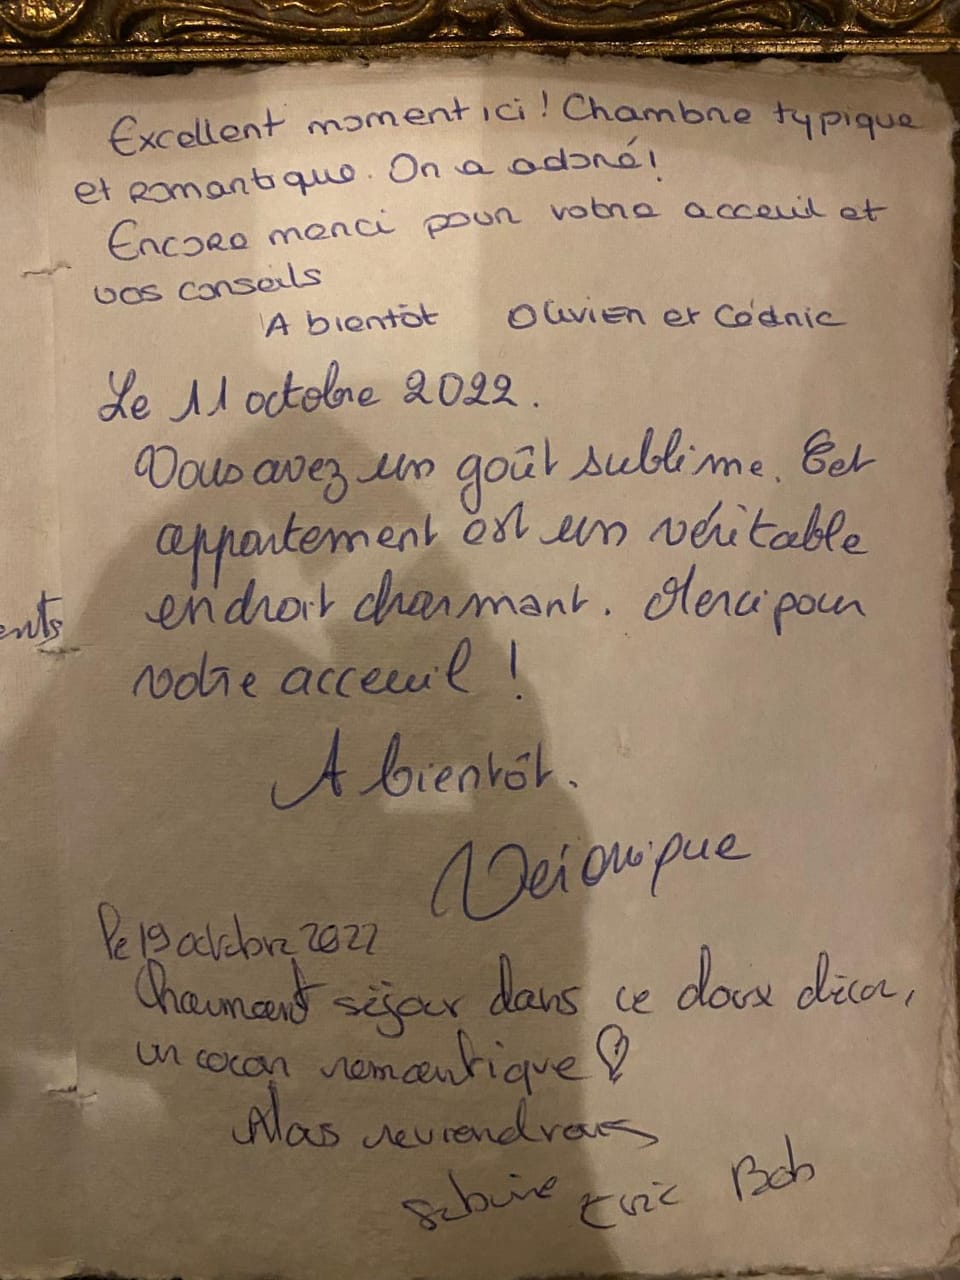 Excellent moment ici ! Chambre typique
et romantique. On a adoré !
Encore merci pour votre acceuil et
vos conseils
A bientôt Olivier et Cédric
Le 11 octobre 2022.
Vous avez un goût sublime. Cet
appartement est un véritable
endroit charmant. Merci pour
ents
votre acceuil !
A bientôt.
Véronique
Le 19 octobre 2022
Charmant séjour dans ce doux décor,
un cocon romantique
Nous reviendrons
Sabine Eric Bob